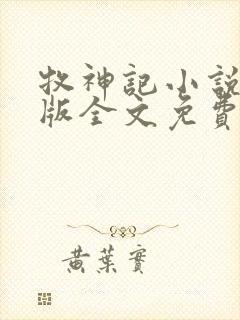 牧神記小說
版全文免費
黃葉實